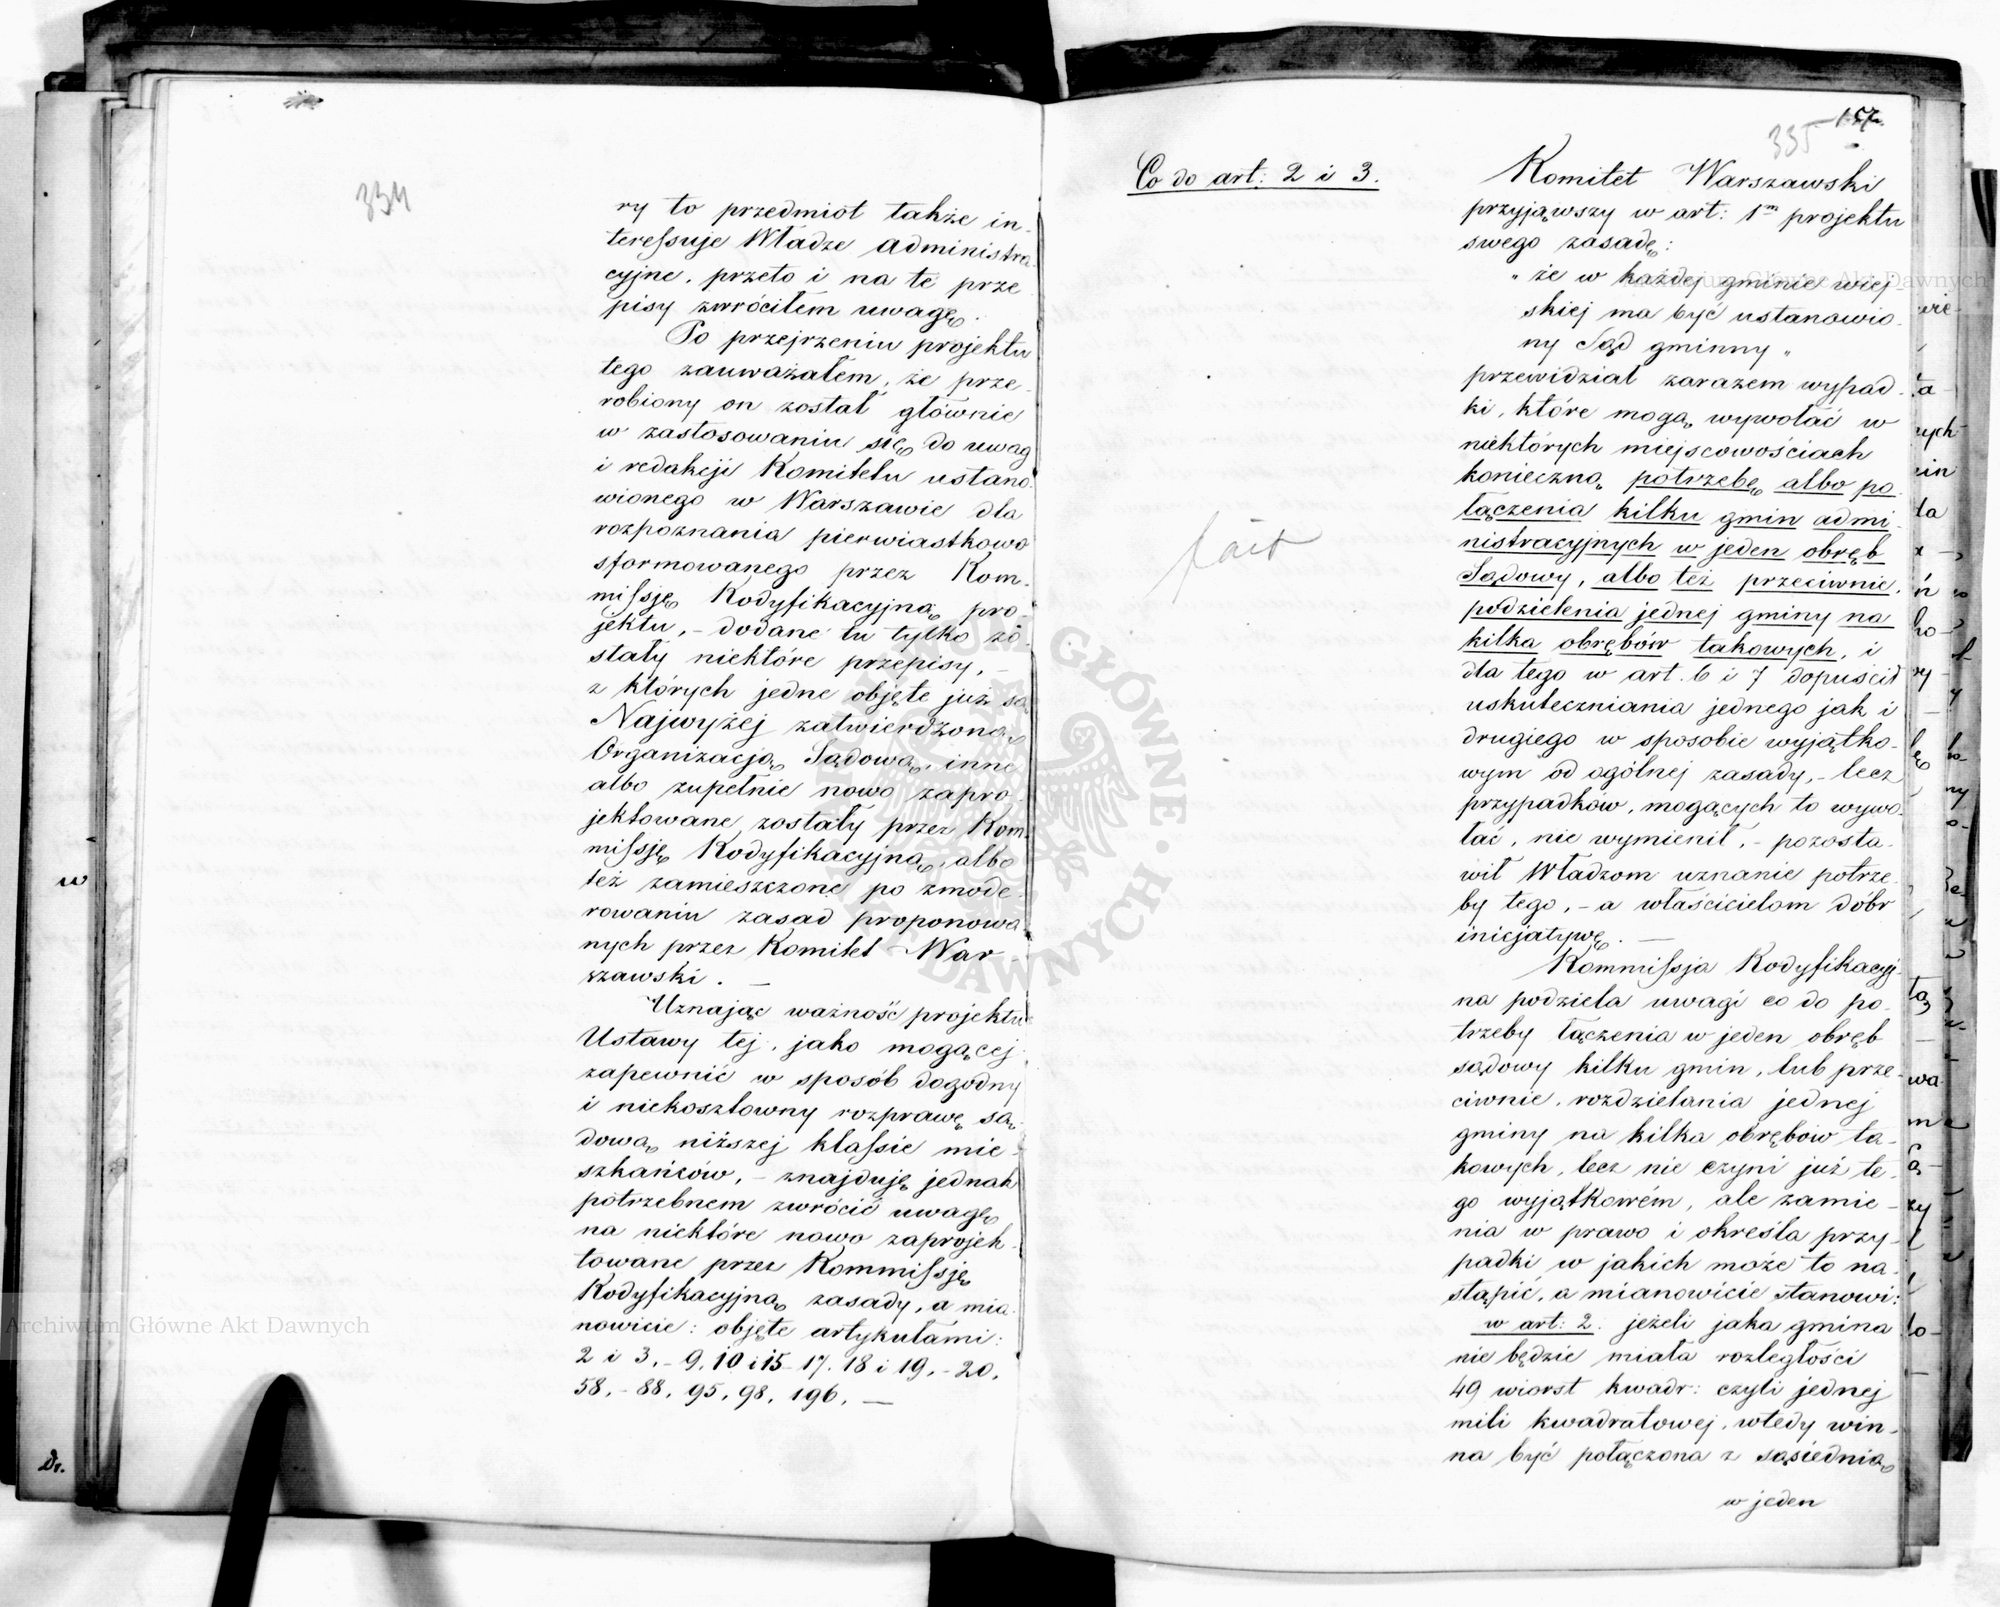 334
ry to przedmiot także in-
teressuje Władze administra-
cyjne, przeto i na te prze
pisy zwróciłem uwagę.
Po przejrzeniu projektu
tego zauważałem, że prze-
robiony on został głównie
w zastosowaniu się do uwag
i redakcji Komitetu ustano-
wionego w Warszawie dla
rozpoznania pierwiastkowo
sformowanego przez Kom-
missję Kodyfikacyjną pro-
jektu, – dodane tu tylko zo-
stały niektóre przepisy, –
z których jedne objęte już są
Najwyżej zatwierdzoną
Organizacją Sądową, inne
albo zupełnie nowo zapro-
jektowane zostały przez Kom-
missję Kodyfikacyjną, albo
też zamieszczone po zmode-
rowaniu zasad proponowa-
nych przez Komitet War-
szawski. —
Uznając ważność projektu
Ustawy tej, jako mogącej
zapewnić w sposób dogodny
i niekosztowny rozprawę są-
dową niższej klassie mie-
szkańców, – znajduję jednak
potrzebnem zwrócić uwagę
na niektóre nowo zaprojek-
towane przez Kommissję
Kodyfikacyjną zasady, a mia-
nowicie: objęte artykułami:
2 i 3, – 9, 10 i 15 – 17. 18 i 19, – 20,
58, – 88, 95, 98, 196. —
157.
335
Co do art: 2 i 3.
Komitet Warszawski
przyjąwszy w art: 1m projektu
swego zasadę:
„ że w każdej gminie wiej
skiej ma być ustanowio-
ny Sąd gminny „
przewidział zarazem wypad-
ki, które mogą wywołać w
niektórych miejscowościach
konieczną potrzebę albo po-
łączenia kilku gmin admi-
nistracyjnych w jeden obręb
Sądowy, albo też przeciwnie,
podzielenia jednej gminy na
kilka obrębów takowych, i
dla tego w art. 6 i 7 dopuścił
uskuteczniania jednego jak i
drugiego w sposobie wyjątko-
wym od ogólnej zasady, – lecz
przypadków, mogących to wywo-
łać, nie wymienił, – pozosta-
wił Władzom uznanie potrze-
by tego, – a właścicielom dóbr
inicjatywę. —
Kommissja Kodyfikacyj-
na podziela uwagi co do po-
trzeby łączenia w jeden obręb
sądowy kilku gmin, lub prze-
ciwnie, rozdzielania jednej
gminy na kilka obrębów ta-
kowych, lecz nie czyni już te-
go wyjątkowém, ale zamie-
nia w prawo i określa przy-
padki w jakich może to na-
stąpić, a mianowicie stanowi:
w art: 2. jeżeli jaka gmina
nie będzie miała rozległości
49 wiorst kwadr: czyli jednej
mili kwadratowej, wtedy win-
na być połączona z sąsiednią
w jeden
Archiwum Główne Akt Dawnych